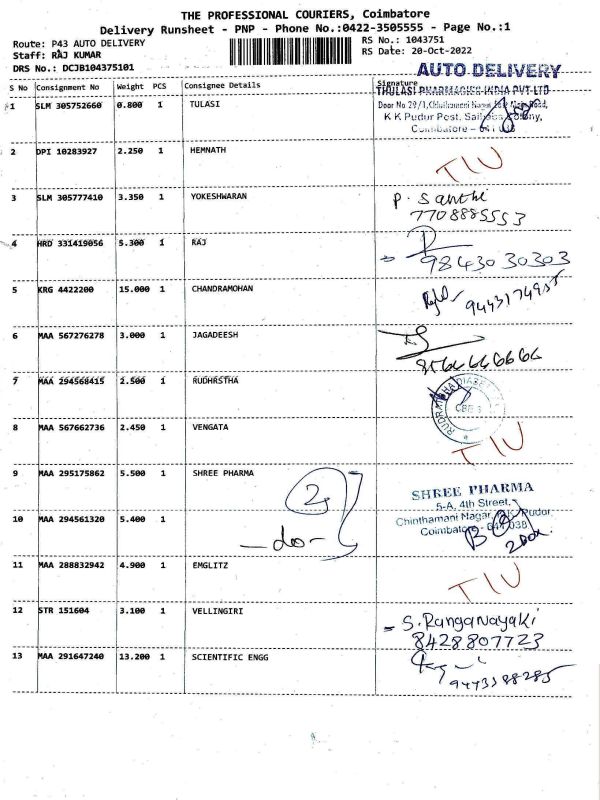 THE PROFESSIONAL COURIERS, Coimbatore
Delivery Runsheet - PNP - Phone No.:0422-3505555 - Page No.:1
Route: P43 AUTO DELIVERY RS No.: 1043751
Staff: RAJ KUMAR RS Date: 20-Oct-2022
DRS No.: DCJB104375101
AUTO DELIVERY
S No Consignment No Weight PCS Consignee Details Signature
THULASI PHARMACIES INDIA PVT LTD
1 SLM 305752660 0.800 1 TULASI
Door No 29/1, Chinthamani Nagar, Road,
K K Pudur Post, Colony,
Coimbatore - 641 038
2 DPI 10283927 2.250 1 HEMNATH TIU
3 SLM 305777410 3.350 1 YOKESHWARAN P. Santhi
7708885553
4 HRD 331419056 5.300 1 RAJ
9843030303
5 KRG 4422200 15.000 1 CHANDRAMOHAN
6 MAA 567276278 3.000 1 JAGADEESH
7 MAA 294568415 2.500 1 RUDHRSTHA
8 MAA 567662736 2.450 1 VENGATA TIU
9 MAA 295175862 5.500 1 SHREE PHARMA 2
SHREE PHARMA
5-A, 4th Street,
Chinthamani Nagar, K.K. Pudur,
Coimbatore - 641 038
10 MAA 294561320 5.400 1 -do-
11 MAA 288832942 4.900 1 EMGLITZ TIU
12 STR 151604 3.100 1 VELLINGIRI S. Ranganayaki
8428807723
13 MAA 291647240 13.200 1 SCIENTIFIC ENGG